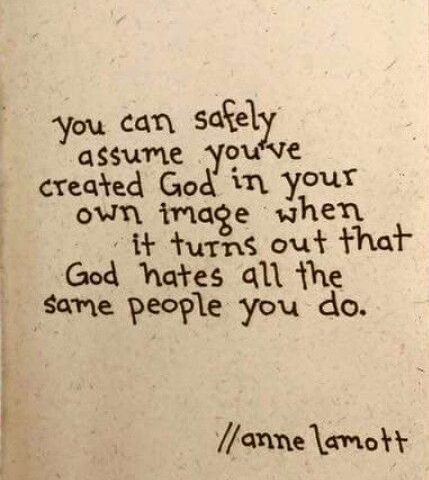 you can safely
assume you've
created God in your
own image when
it turns out that
God hates all the
same people you do.
//anne lamott